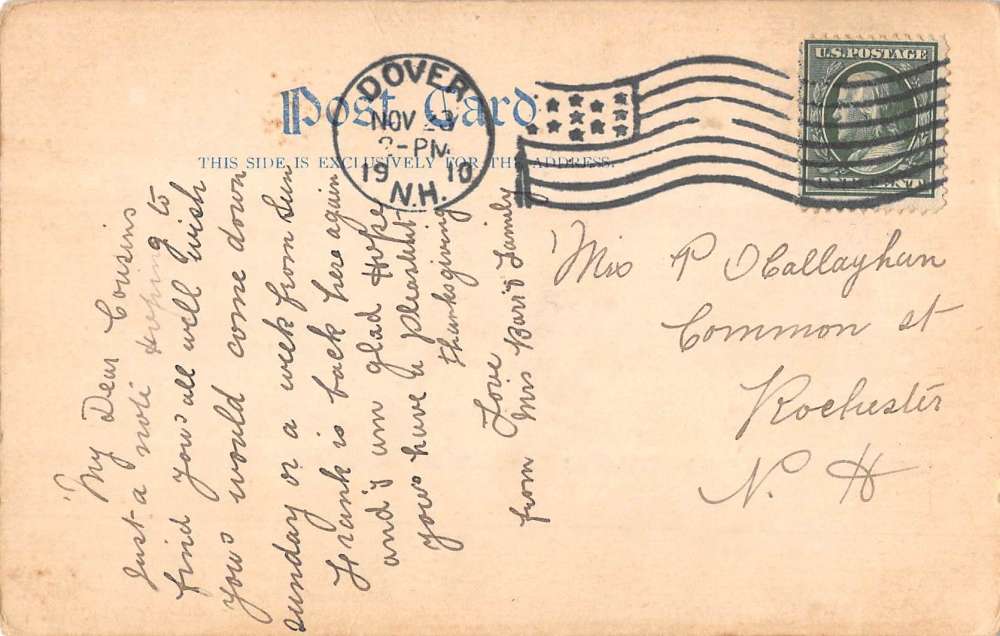 Post Card
THIS SIDE IS EXCLUSIVELY FOR THE ADDRESS.
DOVER
NOV 23
PM
1910
N.H.
U.S. POSTAGE
ONE CENT
My Dear Cousins
Just a note hoping to
find yous all well wish
yous would come down
sunday or a week from sun
Frank is back here again
and I am glad Hope
yous have a pleasant
thanksgiving
Love
from Mrs Family
Mrs P OCallaghan
Common st
Rochester
N. H